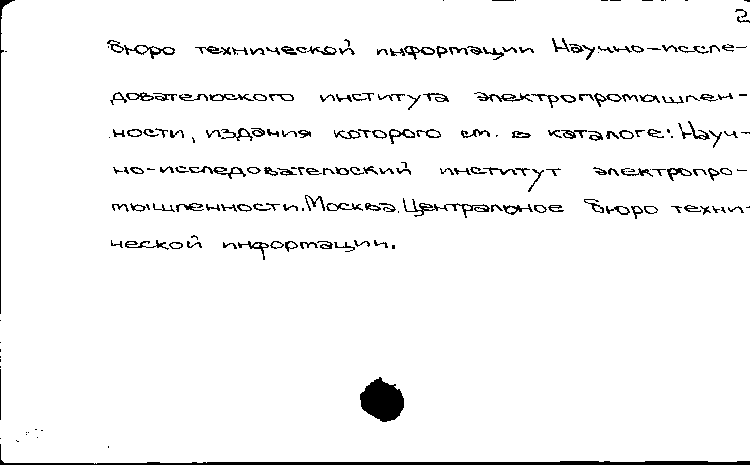 2
бюро технической информации Научно-иссле-
довательского института электропромышлен-
ности, издания которого см. в каталоге: Науч-
но-исследовательский институт электропро-
мышленности. Москва. Центральное бюро техни-
ческой информации.